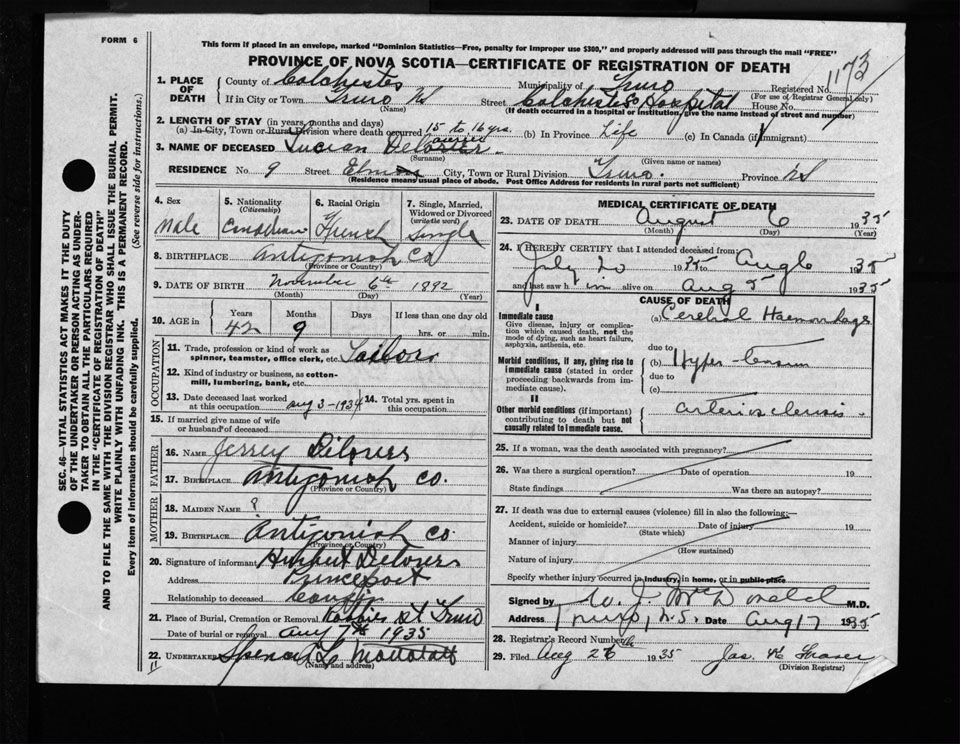 FORM 6
This form if placed in an envelope, marked "Dominion Statistics—Free, penalty for Improper use $300," and properly addressed will pass through the mail "FREE"
PROVINCE OF NOVA SCOTIA—CERTIFICATE OF REGISTRATION OF DEATH
1173
1. PLACE OF DEATH
County of Colchester Municipality of Truro Registered No.
(For use of Registrar General only)
If in City or Town Truro NS Street Colchester Co Hospital House No.
(Name) (If death occurred in a hospital or institution, give the name instead of street and number)
2. LENGTH OF STAY (in years, months and days)
(a) In City, Town or Rural Division where death occurred 15 to 16 yrs. (b) In Province Life (c) In Canada (if immigrant)
3. NAME OF DECEASED Lucian
(Surname) (Given name or names)
RESIDENCE No. 9 Street Elm City, Town or Rural Division Truro. Province NS
(Residence means usual place of abode. Post Office Address for residents in rural parts not sufficient)
4. Sex
Male
5. Nationality
(Citizenship)
Canadian
6. Racial Origin
French
7. Single, Married, Widowed or Divorced
(write the word)
Single
8. BIRTHPLACE Antigonish Co
(Province or Country)
9. DATE OF BIRTH November 6th 1892
(Month) (Day) (Year)
10. AGE in Years Months Days If less than one day old
42 9 hrs. or min.
OCCUPATION
11. Trade, profession or kind of work as
spinner, teamster, office clerk, etc.
12. Kind of industry or business, as cotton-
mill, lumbering, bank, etc.
13. Date deceased last worked
at this occupation Aug 3-1934
14. Total yrs. spent in
this occupation
15. If married give name of wife
or husband of deceased
FATHER
16. NAME Jerrey
17. BIRTHPLACE Antigonish Co.
(Province or Country)
MOTHER
18. MAIDEN NAME ?
19. BIRTHPLACE Antigonish Co
(Province or Country)
20. Signature of informant
Address Princeport
Relationship to deceased Cousin
21. Place of Burial, Cremation or Removal Robie St Truro
Date of burial or removal Aug 7th 1935
22. UNDERTAKER
(Name and address)
MEDICAL CERTIFICATE OF DEATH
23. DATE OF DEATH August 6 1935
(Month) (Day) (Year)
24. I HEREBY CERTIFY that I attended deceased from
July 20 1935 to Aug 6 1935
and last saw him alive on Aug 5 1935
CAUSE OF DEATH
I
Immediate cause
Give disease, injury or complication which caused death, not the mode of dying, such as heart failure, asphyxia, asthenia, etc.
(a) Cerebral Haemorrhage
due to
Morbid conditions, if any, giving rise to immediate cause (stated in order proceeding backwards from immediate cause).
(b) Hyper-tension
due to
(c)
II
Other morbid conditions (if important) contributing to death but not causally related to immediate cause.
arterio sclerosis.
25. If a woman, was the death associated with pregnancy?
26. Was there a surgical operation? Date of operation 19
State findings Was there an autopsy?
27. If death was due to external causes (violence) fill in also the following:—
Accident, suicide or homicide? Date of injury 19
(State which)
Manner of injury
(How sustained)
Nature of injury
Specify whether injury occurred in industry, in home, or in public place
Signed by W. J. McDonald M.D.
Address Truro, N.S. Date Aug 17 1935
28. Registrar's Record Number
29. Filed Aug 26th 1935 Jas. H Fraser
(Division Registrar)
SEC. 46—VITAL STATISTICS ACT MAKES IT THE DUTY
OF THE UNDERTAKER OR PERSON ACTING AS UNDER-
TAKER TO OBTAIN ALL THE PARTICULARS REQUIRED
IN THE "CERTIFICATE OF REGISTRATION OF DEATH"
AND TO FILE THE SAME WITH THE DIVISION REGISTRAR WHO SHALL ISSUE THE BURIAL PERMIT.
WRITE PLAINLY WITH UNFADING INK. THIS IS A PERMANENT RECORD.
Every item of information should be carefully supplied.
(See reverse side for instructions.)